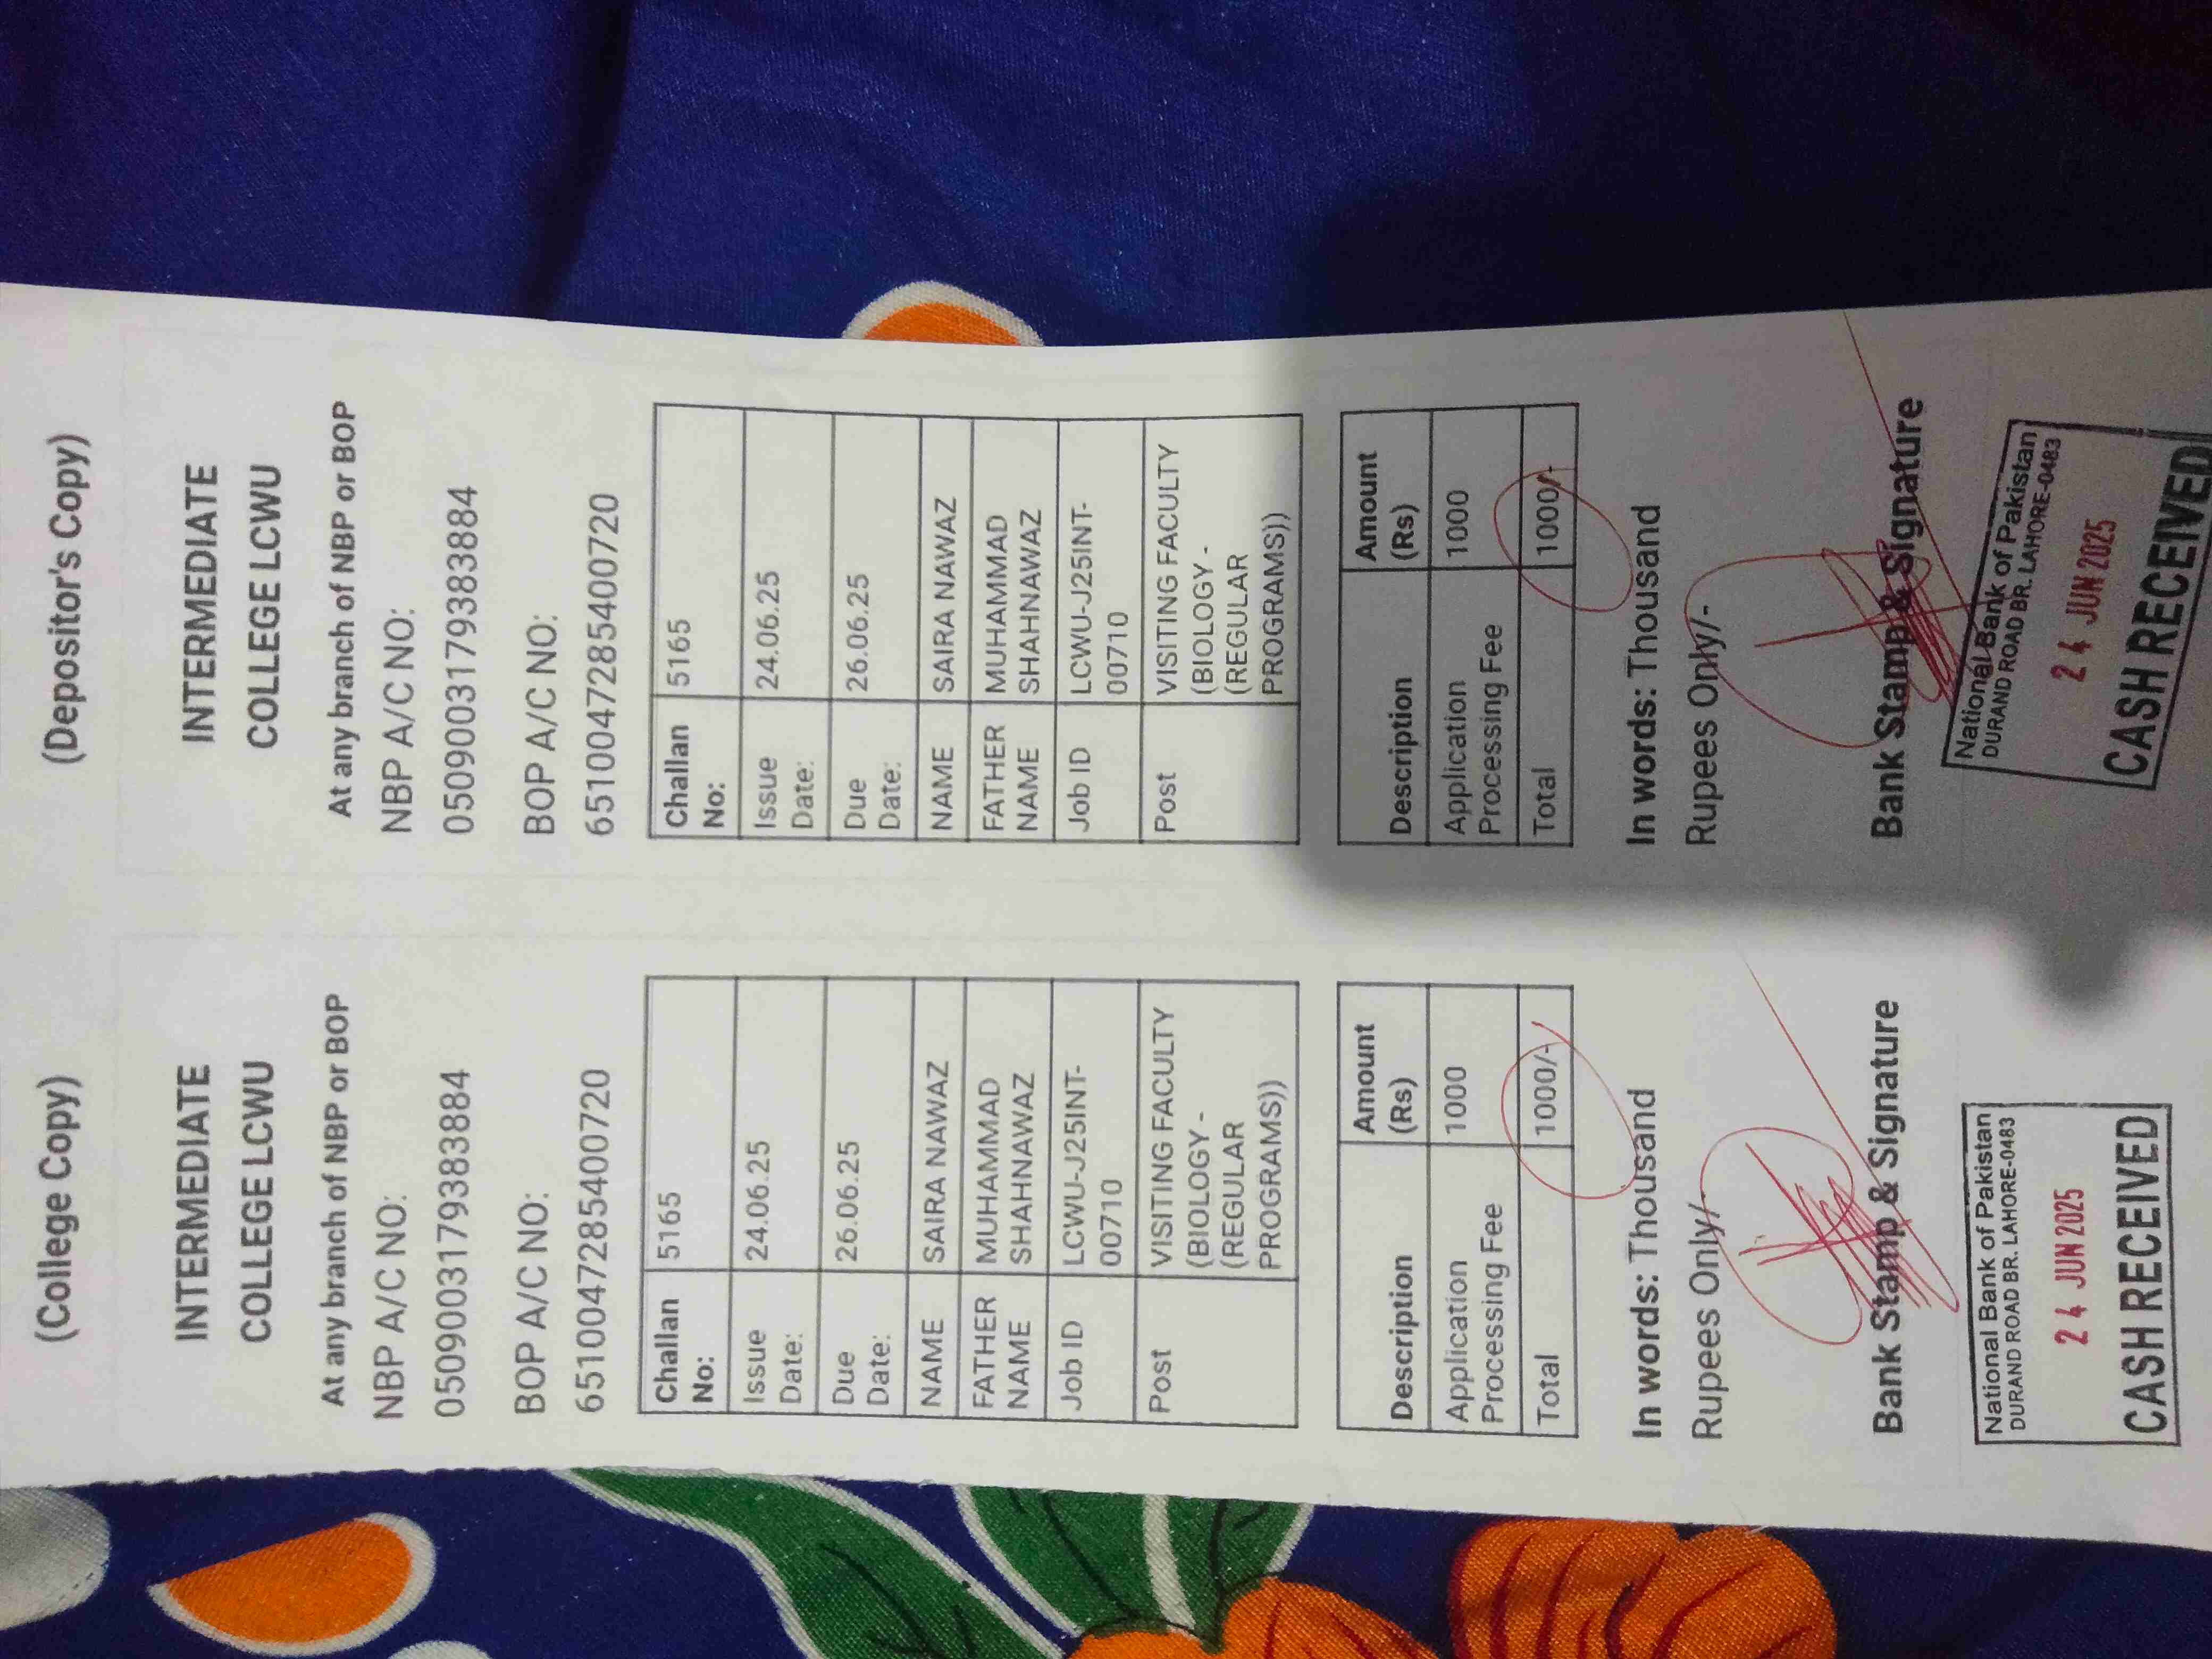 (College Copy)
INTERMEDIATE
COLLEGE LCWU
At any branch of NBP or BOP
NBP A/C NO:
05090031793838​84
BOP A/C NO:
6510047285400720
Challan No: 5165
Issue Date: 24.06.25
Due Date: 26.06.25
NAME SAIRA NAWAZ
FATHER NAME MUHAMMAD SHAHNAWAZ
Job ID LCWU-J25INT-00710
Post VISITING FACULTY
(BIOLOGY -
(REGULAR
PROGRAMS))
Description Amount (Rs)
Application Processing Fee 1000
Total 1000/-
In words: Thousand
Rupees Only/-
Bank Stamp & Signature
National Bank of Pakistan
DURAND ROAD BR. LAHORE-0483
24 JUN 2025
CASH RECEIVED
(Depositor's Copy)
INTERMEDIATE
COLLEGE LCWU
At any branch of NBP or BOP
NBP A/C NO:
0509003179383884
BOP A/C NO:
6510047285400720
Challan No: 5165
Issue Date: 24.06.25
Due Date: 26.06.25
NAME SAIRA NAWAZ
FATHER NAME MUHAMMAD SHAHNAWAZ
Job ID LCWU-J25INT-00710
Post VISITING FACULTY
(BIOLOGY -
(REGULAR
PROGRAMS))
Description Amount (Rs)
Application Processing Fee 1000
Total 1000/-
In words: Thousand
Rupees Only/-
Bank Stamp & Signature
National Bank of Pakistan
DURAND ROAD BR. LAHORE-0483
24 JUN 2025
CASH RECEIVED